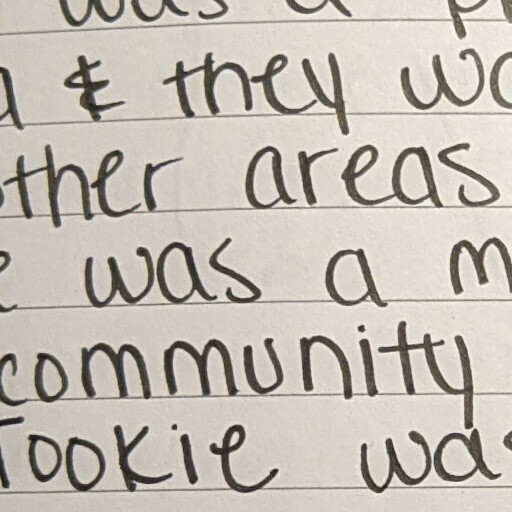 was a
& they
other areas
was a
community
Tookie was